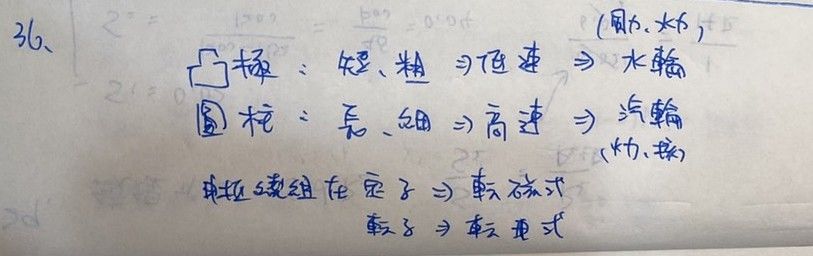 36、
(風力、水力)
凸極：短、粗⇒低速⇒水輪
圓柱：長、細⇒高速⇒汽輪
(火力、核)
電樞繞組在定子⇒転磁式
転子⇒転電式